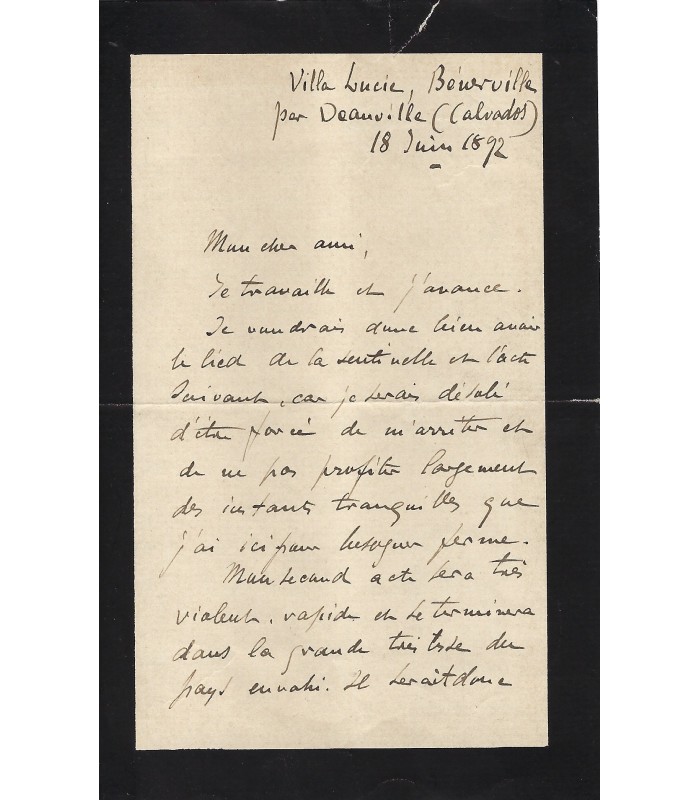 Villa Lucie, Bénerville
par Deauville (Calvados)
18 Juin 1892
Mon cher ami,
Je travaille et j'avance.
Je voudrais donc bien avoir
le lied de la sentinelle et l'acte
suivant, car je serais désolé
d'être forcé de m'arrêter et
de ne pas profiter largement
des instants tranquilles que
j'ai ici pour besogner ferme.
Mon second acte sera très
violent, rapide et se terminera
dans la grande tristesse du
pays envahi. Il serait donc